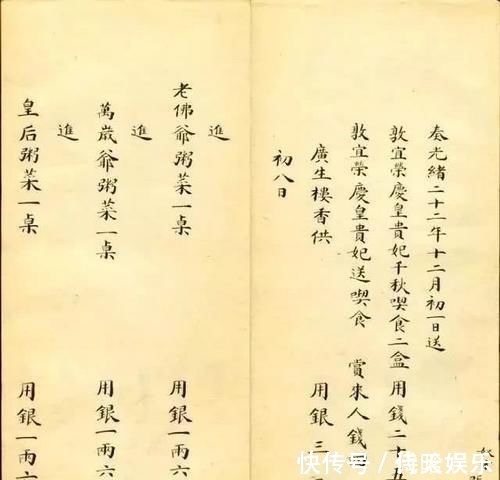 奏光緒二十二年十二月初一日送
敦宜榮慶皇貴妃千秋喫食二盒 用錢二十五
敦宜榮慶皇貴妃送喫食 賞來人錢
廣生樓香供 用銀三
初八日
進
老佛爺粥菜一桌 用銀一兩六
進
萬歲爺粥菜一桌 用銀一兩六
進
皇后粥菜一桌 用銀一兩六
快传号/娱乐